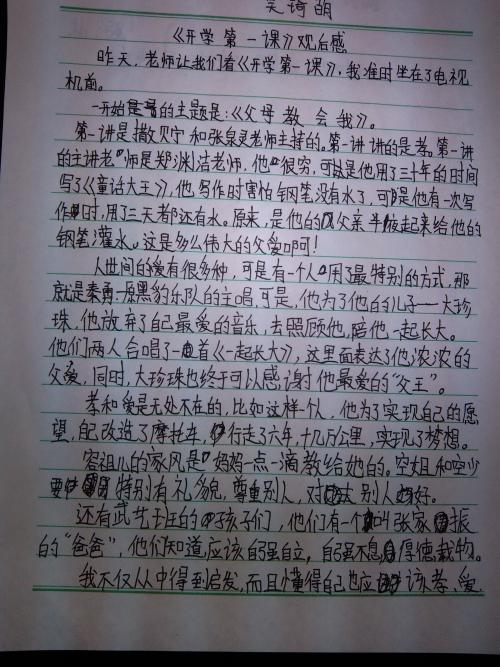 吴琦明
《开学第一课》观后感
昨天,老师让我们看《开学第一课》,我准时坐在了电视
机前。
一开始是的主题是:《父母教会我》。
第一讲是撒贝宁和张泉灵老师主持的。第一讲讲的是孝。第一讲
的主讲老师是郑渊洁老师,他很穷,可是他用了三十年的时间
写了《童话大王》,他写作时害怕钢笔没有水了,可是他有一次写
作时,用了三天都还有水。原来,是他的父亲半夜起来给他的
钢笔灌水。这是多么伟大的父爱啊!
人世间的爱有很多种,可是有一个人用了最特别的方式,那
就是秦勇—原黑豹乐队的主唱,可是,他为了他的儿子——大珍
珠,他放弃了自己最爱的音乐,去照顾他,陪他一起长大。
他们两人合唱了一首《一起长大》,这里面表达了他浓浓的
父爱,同时,大珍珠也终于可以感谢他最爱的“父王”。
孝和爱是无处不在的,比如这样一个人,他为了实现自己的愿
望,自己改造了摩托车,行走了六年,十几万公里,实现了梦想。
容祖儿的家风是“妈妈一点一滴教给她的。空姐和空少
要特别有礼貌,尊重别人,对别人好。
还有武艺班的孩子们,他们有一个叫张家振
的“爸爸”,他们知道应该自强自立,自强不息,厚德载物。
我不仅从中得到启发,而且懂得自己也应该孝、爱